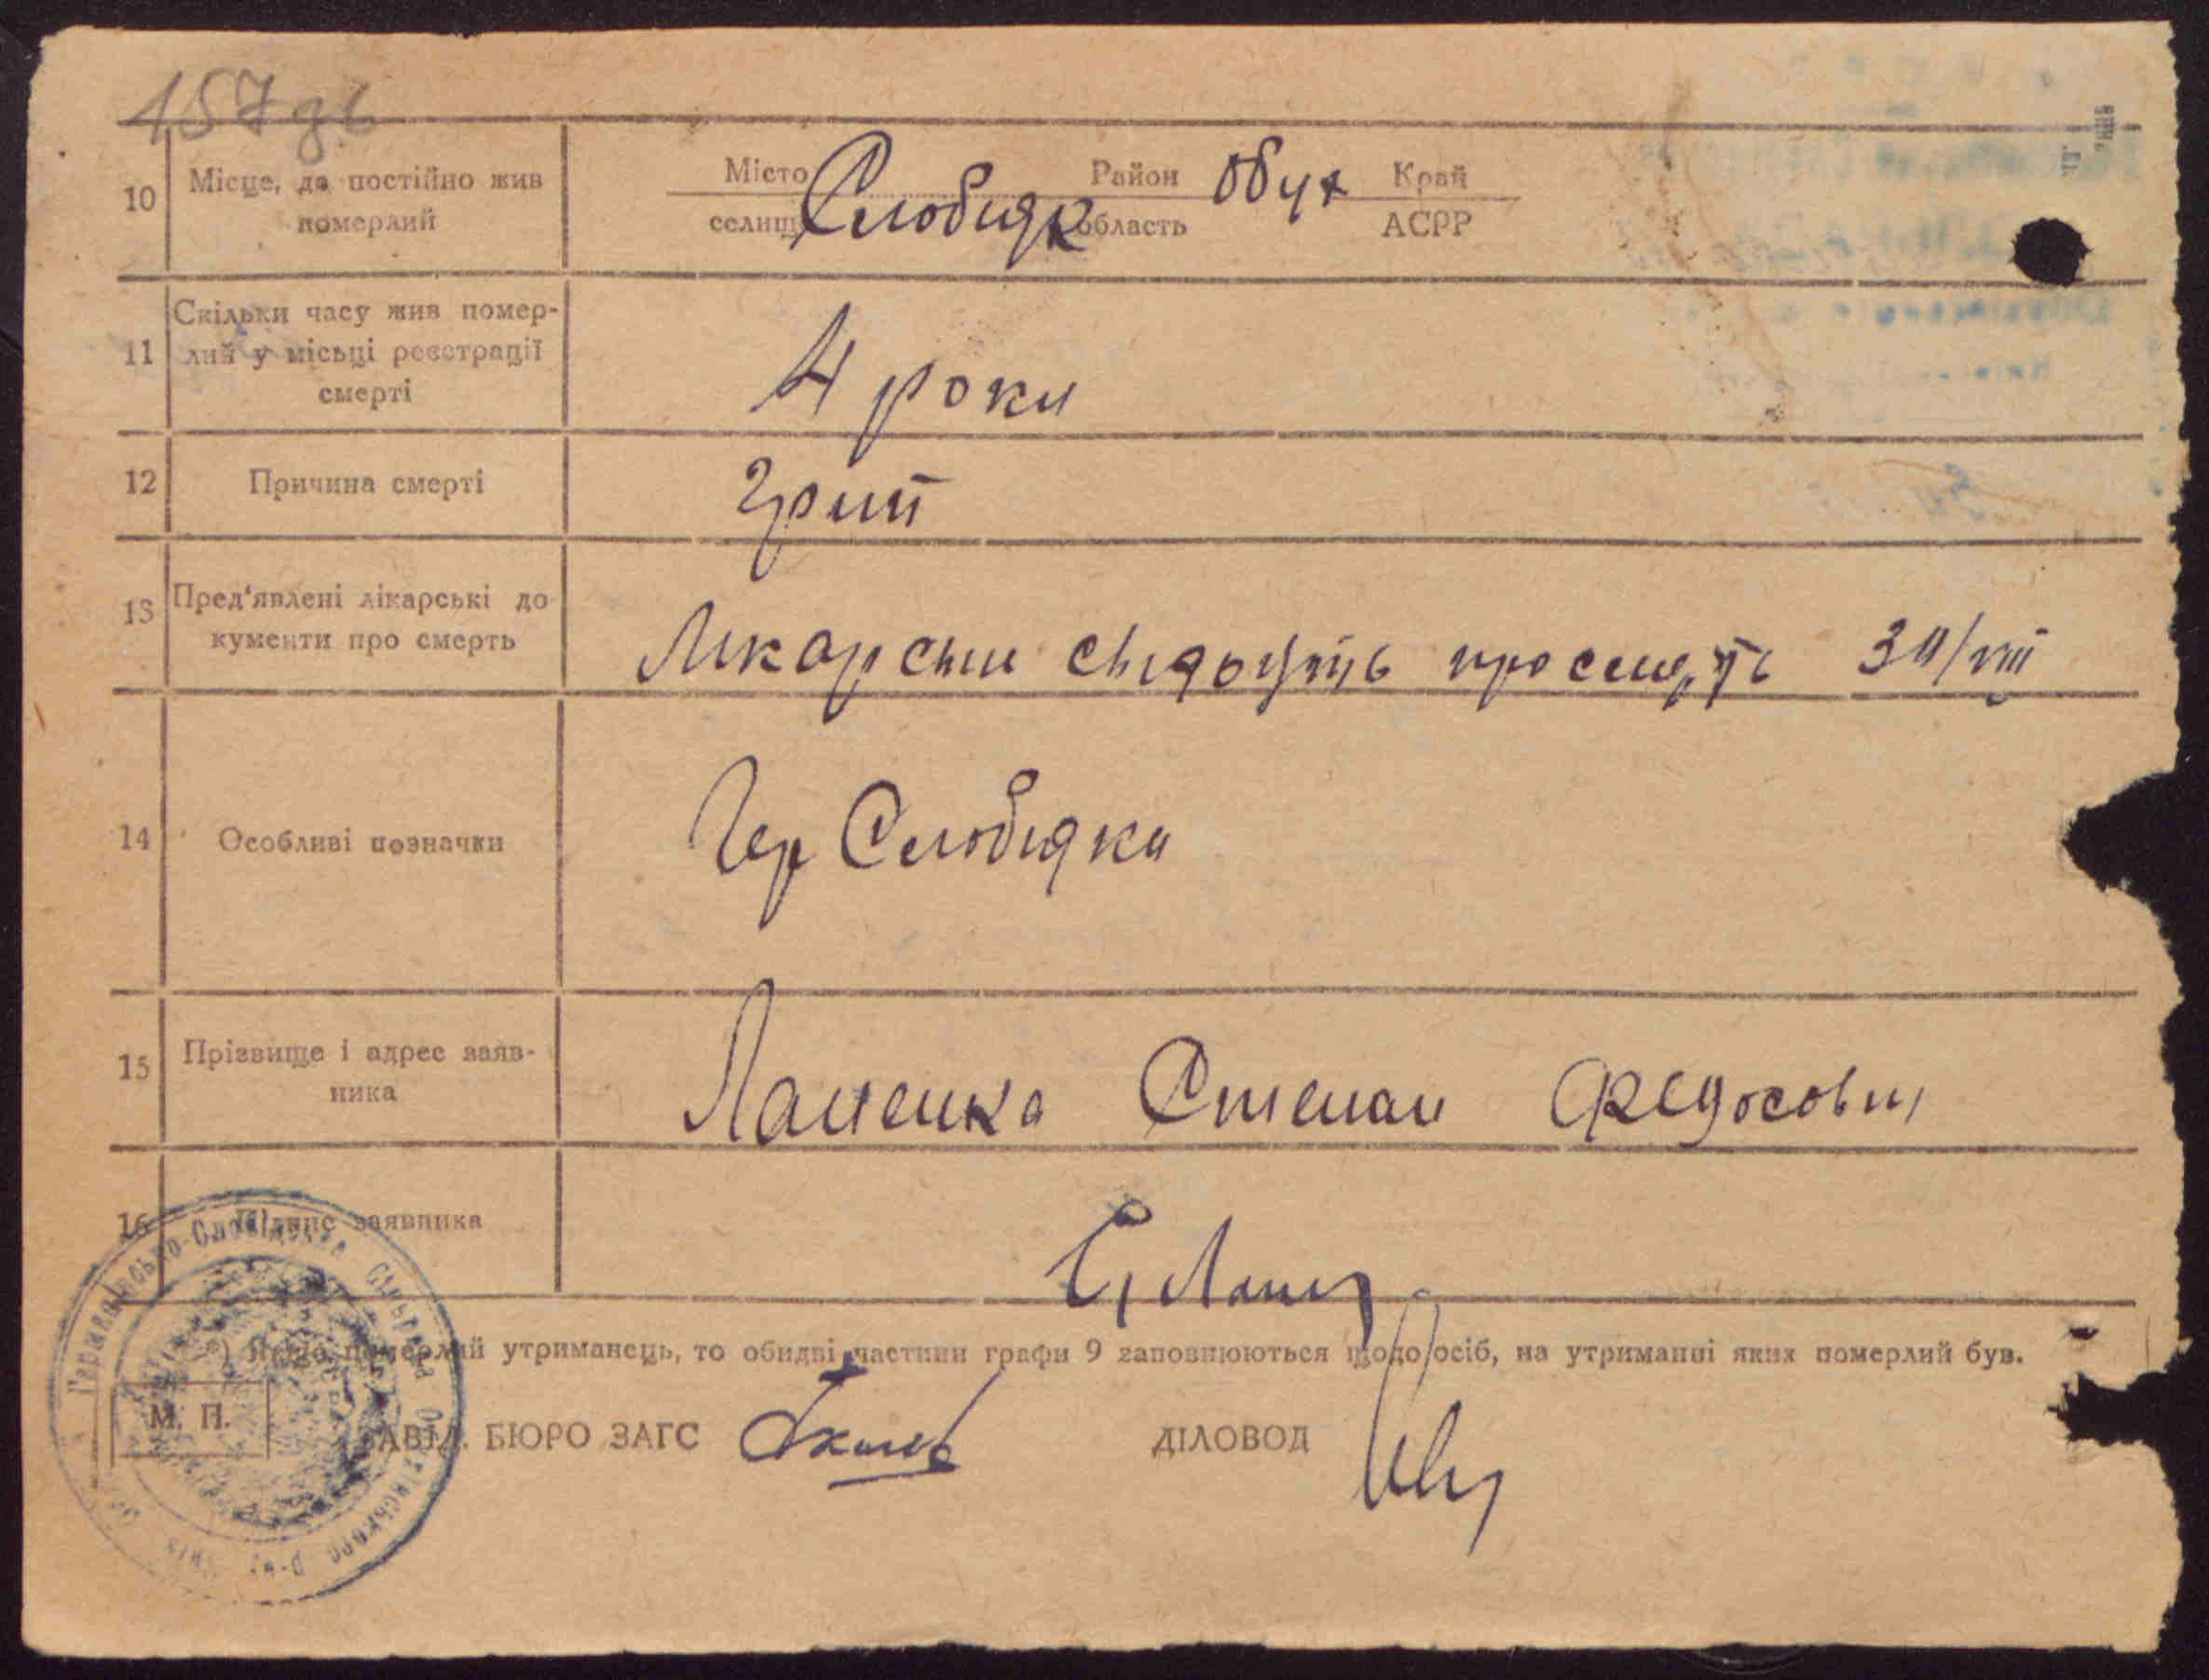 157зв
10 Місце, де постійно жив Місто Слобідк Район Обух Край
померлий селищ область АСРР
11 Скільки часу жив помер-
лий у місьці реєстрації
смерті
4 роки
12 Причина смерті Грип
13 Пред'явлені лікарські до
кументи про смерть
Лікарськи свідоцть про смерть 34/VIII
14 Особливі позначки Гер Слобідка
15 Прізвище і адрес заяв-
ника
Лапенка Степан Федосович
16 Підпис заявника
*) Якщо померлий утриманець, то обидві частини графи 9 заповнюються щодо осіб, на утриманні яких померлий був.
М. П. ЗАВІД. БЮРО ЗАГС ДІЛОВОД